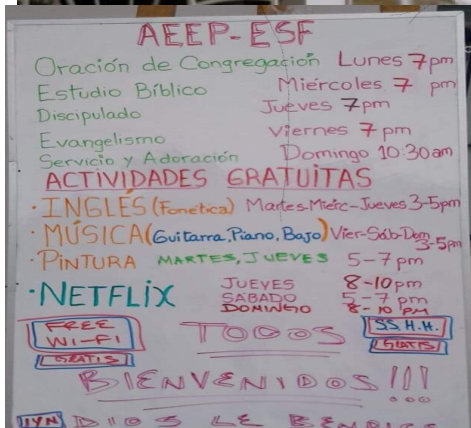 AEEP-ESF
Oración de Congregación Lunes 7pm
Estudio Bíblico Miércoles 7 pm
Discipulado Jueves 7pm
Evangelismo Viernes 7 pm
Servicio y Adoración Domingo 10:30am
ACTIVIDADES GRATUITAS
· INGLÉS (Fonética) Martes-Mierc-Jueves 3-5pm
· MÚSICA (Guitarra, Piano, Bajo) Vier-Sáb-Dom 3-5pm
· PINTURA MARTES, JUEVES 5-7pm
· NETFLIX JUEVES 8-10pm
SABADO 5-7 pm
DOMINGO 8-10 PM
FREE WI-FI GRATIS
TODOS
SS.H.H. GRATIS
BIENVENIDOS!!!
DIOS LE BENDICE